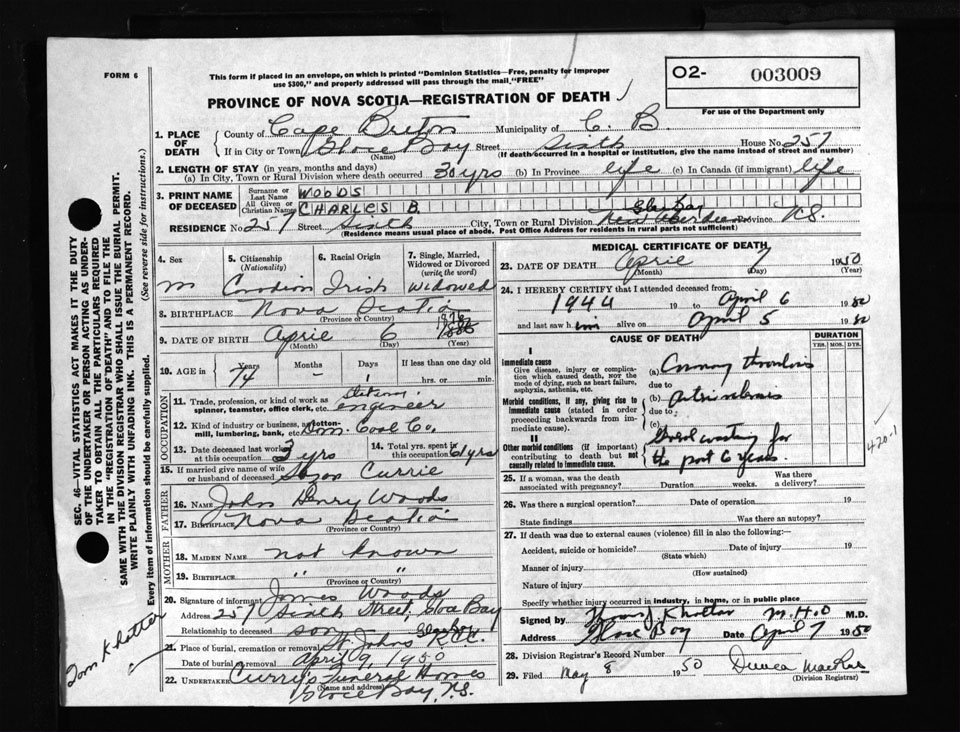 FORM 6
This form if placed in an envelope, on which is printed "Dominion Statistics—Free, penalty for improper
use $300," and properly addressed will pass through the mail "FREE"
O2- 003009
For use of the Department only
PROVINCE OF NOVA SCOTIA—REGISTRATION OF DEATH
1. PLACE OF DEATH
County of Cape Breton Municipality of C. B.
If in City or Town Glace Bay Street Sixth House No. 257
(Name) (If death occurred in a hospital or institution, give the name instead of street and number)
2. LENGTH OF STAY (in years, months and days)
(a) In City, Town or Rural Division where death occurred 30 yrs (b) In Province life (c) In Canada (if immigrant) life
3. PRINT NAME OF DECEASED
Surname or Last Name WOODS
All Given or Christian Names CHARLES B.
RESIDENCE No. 257 Street Sixth City, Town or Rural Division Glace Bay New Aberdeen Province N.S.
(Residence means usual place of abode. Post Office Address for residents in rural parts not sufficient)
4. Sex
M
5. Citizenship (Nationality)
Canadian
6. Racial Origin
Irish
7. Single, Married, Widowed or Divorced (write the word)
Widowed
8. BIRTHPLACE Nova Scotia
(Province or Country)
9. DATE OF BIRTH April 6 1876
(Month) (Day) (Year)
10. AGE in Years Months Days If less than one day old
74 - 1 hrs. or min.
OCCUPATION
11. Trade, profession, or kind of work as
spinner, teamster, office clerk, etc. Stationary engineer
12. Kind of industry or business, as cotton-
mill, lumbering, bank, etc. Dom. Coal Co.
13. Date deceased last worked
at this occupation 2 yrs
14. Total yrs. spent in
this occupation 61 yrs
15. If married give name of wife
or husband of deceased Currie
FATHER
16. NAME John Woods
17. BIRTHPLACE Nova Scotia
(Province or Country)
MOTHER
18. MAIDEN NAME not known
19. BIRTHPLACE " "
(Province or Country)
20. Signature of informant James Woods
Address 257 Sixth Street, Glace Bay
Relationship to deceased son
21. Place of burial, cremation or removal St. Johns Glace Bay
Date of burial or removal April 9, 1950
22. UNDERTAKER Curry's Funeral Homes
(Name and address)
Glace Bay, N.S.
MEDICAL CERTIFICATE OF DEATH
23. DATE OF DEATH April 7 1950
(Month) (Day) (Year)
24. I HEREBY CERTIFY that I attended deceased from:
1944 19 to April 6 1950
and last saw him alive on April 5 1950
CAUSE OF DEATH
DURATION
YRS. MOS. DYS.
I
Immediate cause
Give disease, injury or complica-
tion which caused death, NOT the
mode of dying, such as heart failure,
asphyxia, asthenia, etc.
(a) Coronary thrombosis
due to
Morbid conditions, if any, giving rise to
immediate cause (stated in order
proceeding backwards from im-
mediate cause).
(b) Arteriosclerosis
due to:
(c)
II
Other morbid conditions (if important)
contributing to death but not
causally related to immediate cause.
General wasting for
the past 6 years.
420-1
25. If a woman, was the death
associated with pregnancy? Duration weeks. Was there a delivery?
26. Was there a surgical operation? Date of operation 19
State findings Was there an autopsy?
27. If death was due to external causes (violence) fill in also the following:
Accident, suicide or homicide? Date of injury 19
(State which)
Manner of injury
(How sustained)
Nature of injury
Specify whether injury occurred in industry, in home, or in public place
Signed by Khattar M.H.O M.D.
Address Glace Bay Date April 7 1950
28. Division Registrar's Record Number
29. Filed May 8 1950
(Division Registrar)
SEC. 46—VITAL STATISTICS ACT MAKES IT THE DUTY
OF THE UNDERTAKER OR PERSON ACTING AS UNDER-
TAKER TO OBTAIN ALL THE PARTICULARS REQUIRED
IN THE "REGISTRATION OF DEATH" AND TO FILE THE
SAME WITH THE DIVISION REGISTRAR WHO SHALL ISSUE THE BURIAL PERMIT.
WRITE PLAINLY WITH UNFADING INK. THIS IS A PERMANENT RECORD.
Every item of information should be carefully supplied. (See reverse side for instructions.)
Tom Khattar